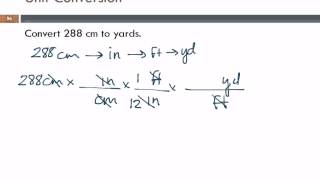 Unit Conversion
Convert 288 cm to yards.
288 cm → in → ft → yd
288 cm × in/cm × 1 ft/12 in × yd/ft